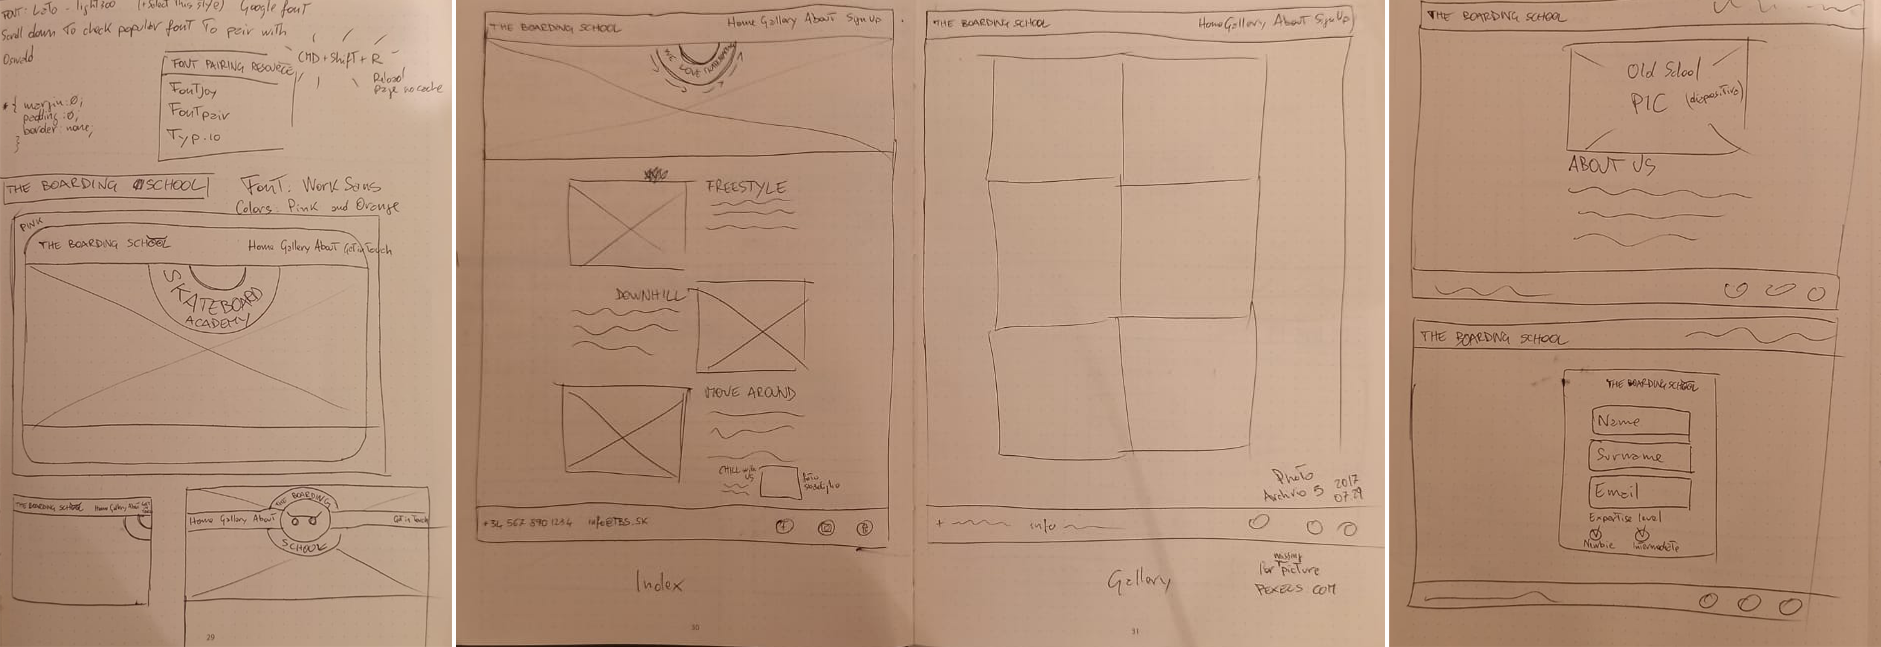 FONT: LATO - light300 (+Select this style) Google font
Scroll down To check popular font To pair with
Oswald
CMD + Shift + R
Reload
Page no cache
FONT PAIRING RESOURCE
FontJoy
FontPair
Typ.io
* { margin: 0;
padding: 0;
border: none;
}
THE BOARDING SCHOOL
Font: Work Sans
Colors: Pink and Orange
PINK
THE BOARDING SCHOOL
Home Gallery About Get in Touch
SKATEBOARD
ACADEMY
THE BOARDING SCHOOL
Home Gallery About
THE BOARDING
Home Gallery About
Get in Touch
SCHOOL
29
THE BOARDING SCHOOL
Home Gallery About SignUp
WE LOVE
FREESTYLE
DOWNHILL
MOVE AROUND
CHILL with
US
+34 567 890 1234 info@TBS.SK
Index
30
THE BOARDING SCHOOL
Home Gallery About SignUp
Photo
Archivio 5 2017
07.29
+ info
missing
for picture
PEXELS.COM
Gallery
31
THE BOARDING SCHOOL
Old School
PIC (diapositiva)
ABOUT US
THE BOARDING SCHOOL
THE BOARDING SCHOOL
Name
Surname
Email
Expertise level
Newbie Intermediate